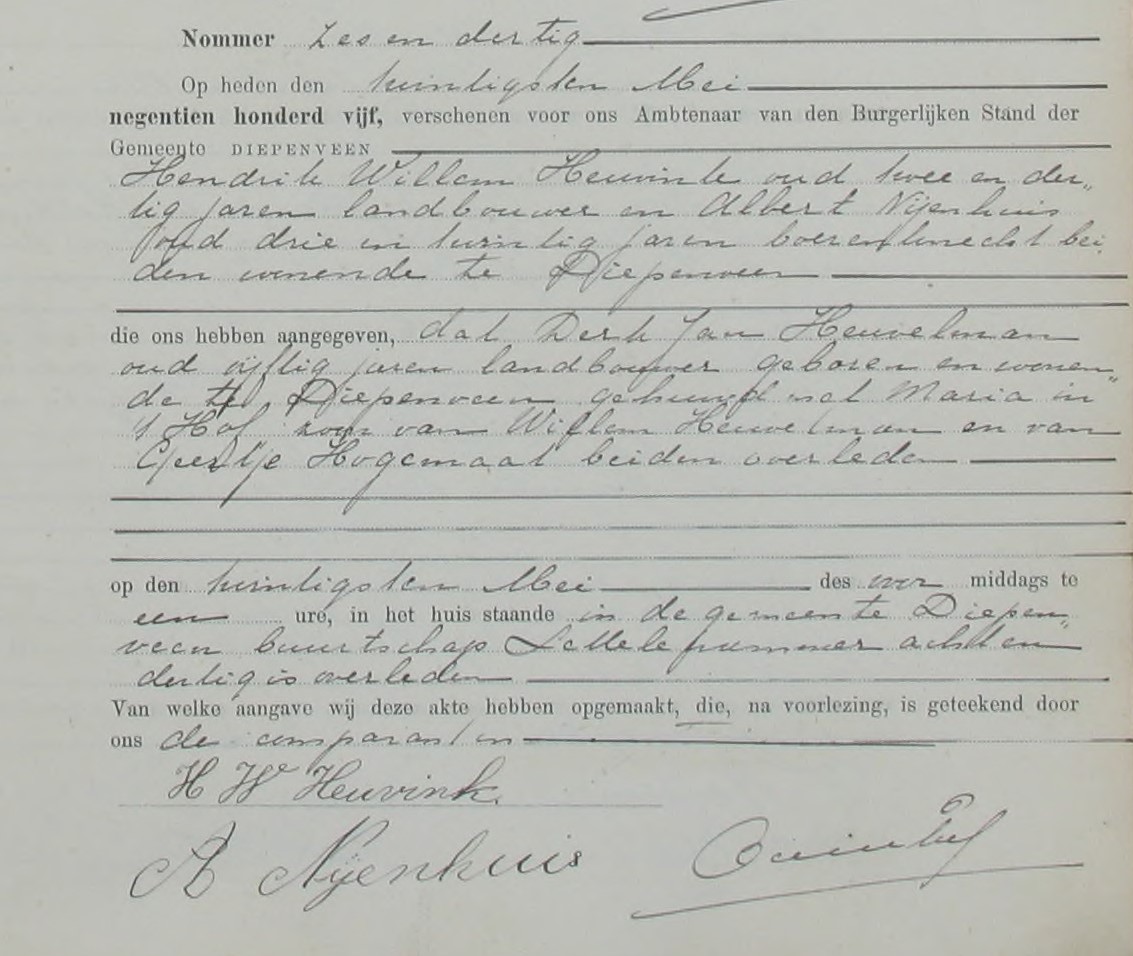 Nommer Zes en dertig
Op heden den twintigsten Mei
negentien honderd vijf, verschenen voor ons Ambtenaar van den Burgerlijken Stand der
Gemeente DIEPENVEEN
Hendrik Willem Heuvink oud twee en der„
tig jaren landbouwer en Albert Nijenhuis
oud drie en twintig jaren boerenknecht bei
den wonende te Diepenveen
die ons hebben aangegeven, dat Derk Jan Heuvelman
oud vijftig jaren landbouwer geboren en wonen„
de te Diepenveen gehuwd met Maria in
't Hof zoon van Willem Heuvelman en van
Geertje Hogemaat beiden overleden
op den twintigsten Mei des voor middags te
een ure, in het huis staande in de gemeente Diepen„
veen buurtschap Lettele nummer acht en
dertig is overleden
Van welke aangave wij deze akte hebben opgemaakt, die, na voorlezing, is geteekend door
ons de comparanten
H We Heuvink.
A Nijenhuis